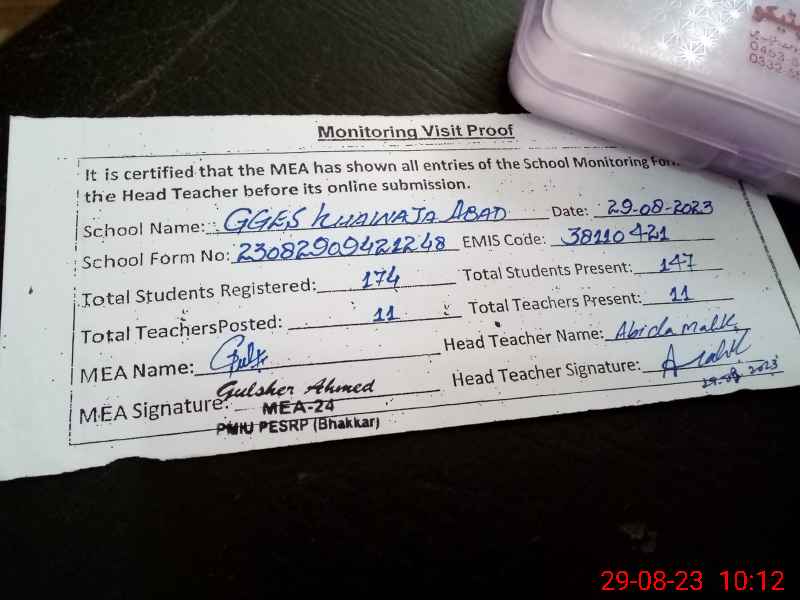 Monitoring Visit Proof
It is certified that the MEA has shown all entries of the School Monitoring Form
the Head Teacher before its online submission.
School Name: GGES KHAWAJA ABAD Date: 29-08-2023
School Form No: 23082909421248 EMIS Code: 38110421
Total Students Registered: 174 Total Students Present: 147
Total TeachersPosted: 11 Total Teachers Present: 11
MEA Name: Head Teacher Name: Abida malk
MEA Signature: Gulsher Ahmed Head Teacher Signature:
MEA-24 29-08-2023
PMIU PESRP (Bhakkar)
0453-5
0332-55
29-08-23 10:12